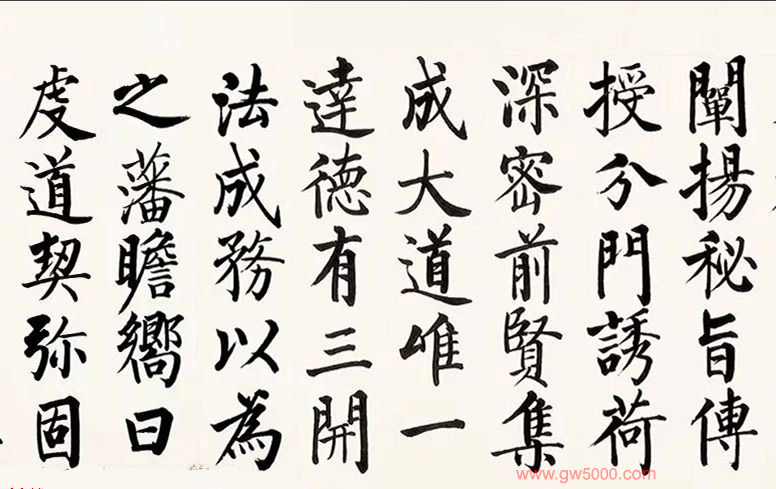 闡揚秘旨傳
授分門誘荷
深密前賢集
成大道唯一
達德有三開
法成務以為
之藩瞻嚮日
虔道契弥固
www.gw5000.com